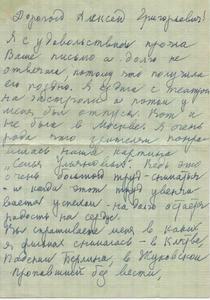 Дорогой Алексей Григорьевич!
Я с удовольствием прочла
Ваше письмо и долго не
отвечала, потому что получила
его поздно. Я ездила с театром
на гастроли и потом у
меня был отпуск. Вот и
не была в Москве. Я очень
рада что зрителям понра-
вилась наша картина
"Семья Ульяновых". Ведь это
очень большой труд - сниматься
и когда этот труд увенчи-
вается успехом - на долго остаётся
радость на сердце.
Вы спрашиваете меня в каких
я фильмах снималась - в Клятве,
Падении Берлина, в Жуковском
пропавший без вести,